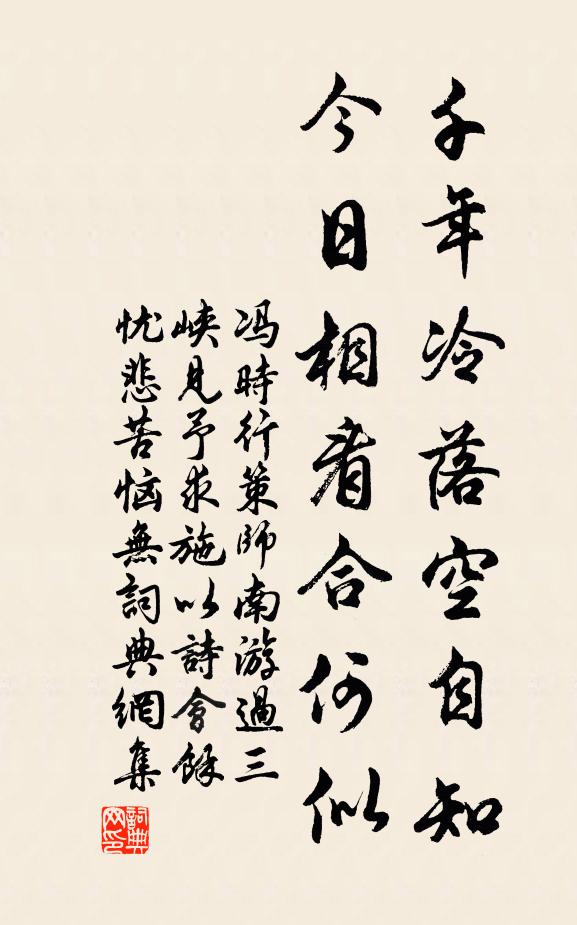 千年冷落空自知
今日相看合何似
冯時行策師南游過三
峽見予求施以詩會餘
忧悲苦恼無詞典網集
詞典网印